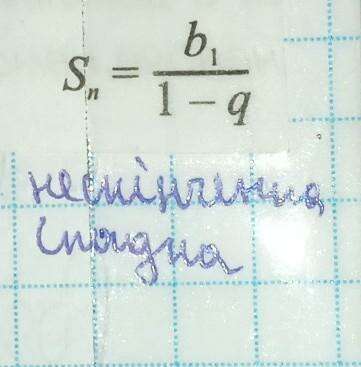 Sₙ = b₁ / (1 − q)
нескінченна
спадна